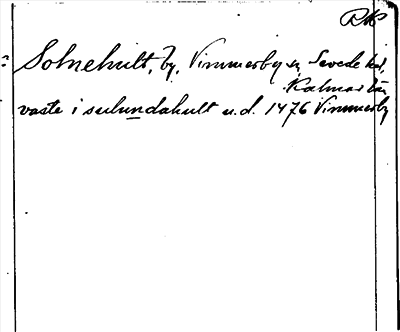 RK
Solnehult, by, Vimmerby sn, Sevede hd,
Kalmar län
vaste i sulundahult u.d. 1476 Vimmerby